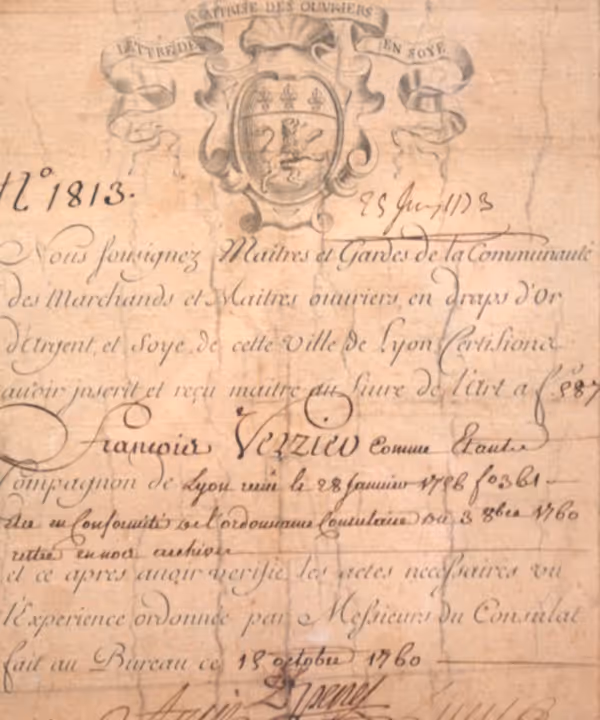 LETTRE DE MAITRISE DES OUVRIERS EN SOYE
N.º 1813.
Nous sousignez Maitres et Gardes de la Communauté
des Marchands et Maitres ouvriers en draps d'Or
d'Argent, et Soye, de cette Ville de Lyon Certifions
avoir inscrit et reçu maitre au livre de l'Art a f.º 587
François Verzieu Comme Etant
Compagnon de Lyon le 28 Janvier 1756 fº 361
en Conformité de l'ordonnance Consulaire Du 3 8bre 1760
et ce apres avoir verifié les actes necessaires vu
l'Experience ordonnée par Messieurs du Consulat
fait au Bureau ce 15 octobre 1760